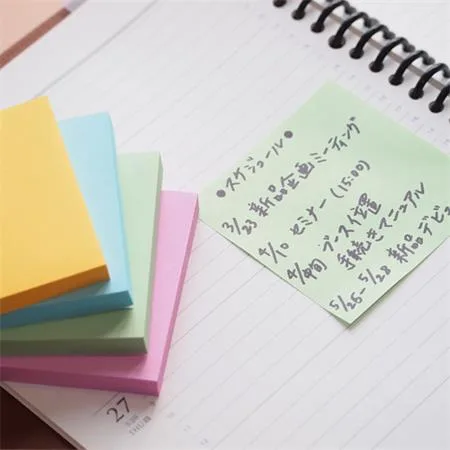 ●スケジュール●
3/23 新品企画ミーティング
4/10 セミナー(15:00)
4/中旬 ブース位置
手続きマニュアル
5/26-5/28 新品デビ
27
THU